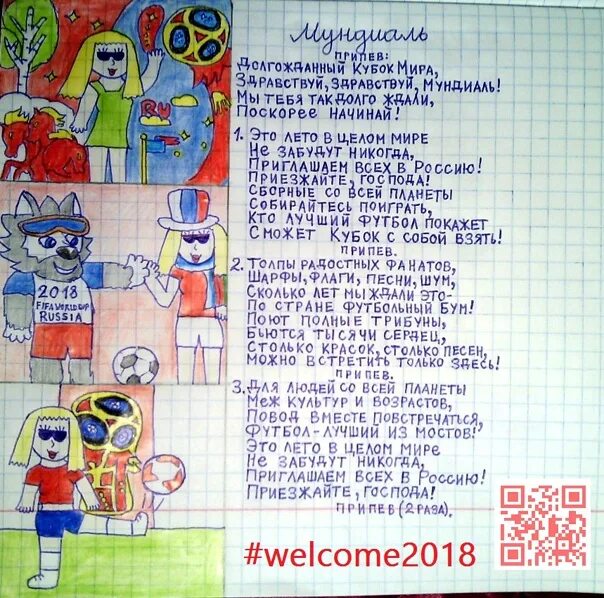 Мундиаль
ПРИПЕВ:
ДОЛГОЖДАННЫЙ КУБОК МИРА,
ЗДРАВСТВУЙ, ЗДРАВСТВУЙ, МУНДИАЛЬ!
МЫ ТЕБЯ ТАК ДОЛГО ЖДАЛИ,
ПОСКОРЕЕ НАЧИНАЙ!
1. ЭТО ЛЕТО В ЦЕЛОМ МИРЕ
НЕ ЗАБУДУТ НИКОГДА,
ПРИГЛАШАЕМ ВСЕХ В РОССИЮ!
ПРИЕЗЖАЙТЕ, ГОСПОДА!
СБОРНЫЕ СО ВСЕЙ ПЛАНЕТЫ
СОБИРАЙТЕСЬ ПОИГРАТЬ,
КТО ЛУЧШИЙ ФУТБОЛ ПОКАЖЕТ
СМОЖЕТ КУБОК С СОБОЙ ВЗЯТЬ!
ПРИПЕВ.
2. ТОЛПЫ РАДОСТНЫХ ФАНАТОВ,
ШАРФЫ, ФЛАГИ, ПЕСНИ, ШУМ,
СКОЛЬКО ЛЕТ МЫ ЖДАЛИ ЭТО-
ПО СТРАНЕ ФУТБОЛЬНЫЙ БУМ!
ПОЮТ ПОЛНЫЕ ТРИБУНЫ,
БЬЮТСЯ ТЫСЯЧИ СЕРДЕЦ,
СТОЛЬКО КРАСОК, СТОЛЬКО ПЕСЕН,
МОЖНО ВСТРЕТИТЬ ТОЛЬКО ЗДЕСЬ!
ПРИПЕВ.
3. ДЛЯ ЛЮДЕЙ СО ВСЕЙ ПЛАНЕТЫ
МЕЖ КУЛЬТУР И ВОЗРАСТОВ,
ПОВОД ВМЕСТЕ ПОВСТРЕЧАТЬСЯ,
ФУТБОЛ-ЛУЧШИЙ ИЗ МОСТОВ!
ЭТО ЛЕТО В ЦЕЛОМ МИРЕ
НЕ ЗАБУДУТ НИКОГДА,
ПРИГЛАШАЕМ ВСЕХ В РОССИЮ!
ПРИЕЗЖАЙТЕ, ГОСПОДА!
ПРИПЕВ (2 РАЗА).
RU
2018
FIFA WORLD CUP
RUSSIA
#welcome2018